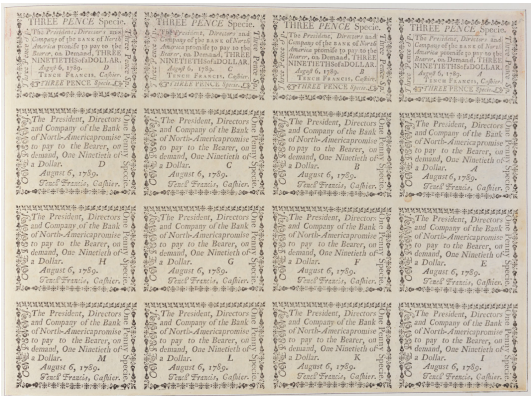 THREE PENCE Specie.
The President, Directors and
Company of the BANK of North
America promise to pay to the
Bearer, on Demand, THREE
NINETIETHS of a DOLLAR.
August 6, 1789.
TENCH FRANCIS, Cashier.
THREE PENCE Specie.
THREE PENCE Specie.
The President, Directors and
Company of the BANK of North
America promise to pay to the
Bearer, on Demand, THREE
NINETIETHS of a DOLLAR.
August 6, 1789. C
TENCH FRANCIS, Cashier.
THREE PENCE Specie.
THREE PENCE Specie.
The President, Directors and
Company of the BANK of North
America promise to pay to the
Bearer, on Demand, THREE
NINETIETHS of a DOLLAR.
August 6, 1789. B
TENCH FRANCIS, Cashier.
THREE PENCE Specie.
THREE PENCE Specie.
The President, Directors and
Company of the BANK of North
America promise to pay to the
Bearer, on Demand, THREE
NINETIETHS of a DOLLAR.
August 6, 1789. A
TENCH FRANCIS, Cashier.
THREE PENCE Specie.
The President, Directors
and Company of the Bank
of North-America promise
to pay to the Bearer, on
demand, One Ninetieth of
a Dollar. D
August 6, 1789.
Tench Francis, Cashier.
The President, Directors
and Company of the Bank
of North-America promise
to pay to the Bearer, on
demand, One Ninetieth of
a Dollar. C
August 6, 1789.
Tench Francis, Cashier.
The President, Directors
and Company of the Bank
of North-America promise
to pay to the Bearer, on
demand, One Ninetieth of
a Dollar. B
August 6, 1789.
Tench Francis, Cashier.
The President, Directors
and Company of the Bank
of North-America promise
to pay to the Bearer, on
demand, One Ninetieth of
a Dollar. A
August 6, 1789.
Tench Francis, Cashier.
The President, Directors
and Company of the Bank
of North-America promise
to pay to the Bearer, on
demand, One Ninetieth of
a Dollar. H
August 6, 1789.
Tench Francis, Cashier.
The President, Directors
and Company of the Bank
of North-America promise
to pay to the Bearer, on
demand, One Ninetieth of
a Dollar. G
August 6, 1789.
Tench Francis, Cashier.
The President, Directors
and Company of the Bank
of North-America promise
to pay to the Bearer, on
demand, One Ninetieth of
a Dollar. F
August 6, 1789.
Tench Francis, Cashier.
The President, Directors
and Company of the Bank
of North-America promise
to pay to the Bearer, on
demand, One Ninetieth of
a Dollar. E
August 6, 1789.
Tench Francis, Cashier.
The President, Directors
and Company of the Bank
of North-America promise
to pay to the Bearer, on
demand, One Ninetieth of
a Dollar. M
August 6, 1789.
Tench Francis, Cashier.
The President, Directors
and Company of the Bank
of North-America promise
to pay to the Bearer, on
demand, One Ninetieth of
a Dollar. L
August 6, 1789.
Tench Francis, Cashier.
The President, Directors
and Company of the Bank
of North-America promise
to pay to the Bearer, on
demand, One Ninetieth of
a Dollar. K
August 6, 1789.
Tench Francis, Cashier.
The President, Directors
and Company of the Bank
of North-America promise
to pay to the Bearer, on
demand, One Ninetieth of
a Dollar. I
August 6, 1789.
Tench Francis, Cashier.